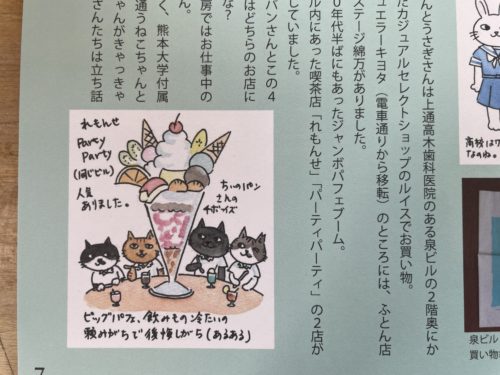 んとうさぎさんは上通高木歯科医院のある泉ビルの２階奥にか
たカジュアルセレクトショップのルイスでお買い物。
ュエラーキヨタ（電車通りから移転）のところには、ふとん店
ステージ綿がありました。
０年代半ばにもあったジャンボパフェブーム。
ル内にあった喫茶店「れもんせ」「パーティパーティ」の２店が
していました。
パンさんとこの４
はどちらのお店に
な？
房ではお仕事中の
く、熊本大学付属
通うねこちゃんと
ゃんがきゃっきゃ
さんたちは立ち話
れもんせ
Party
Party
(同じビル)
人気
ありました。
ちぃのパン
さんの
4ボイズ
ビッグパフェ、飲みもの冷たいの
頼みがちで後悔しがち(あるある)
7
高校は
なのね
泉ビル
買い物